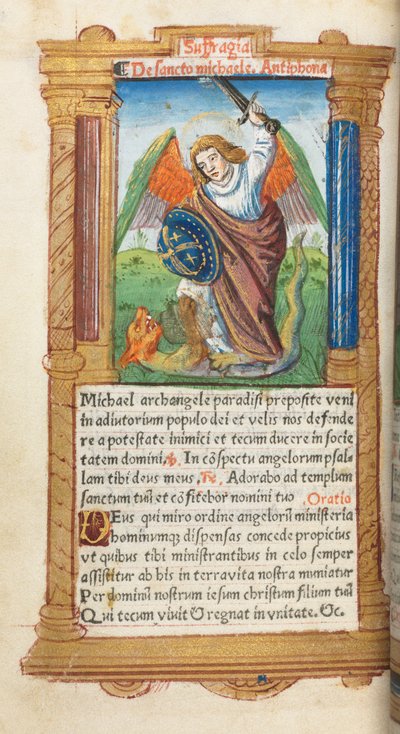 Suffragia
De sancto michaele. Antiphona
Michael archangele paradisi preposite veni
in adiutorium populo dei et velis nos defende
re a potestate inimici et tecum ducere in socie
tatem domini. ℣. In cōspectu angelorum psal
lam tibi deus meus. ℟. Adorabo ad templum
sanctum tuū et cōfitebor nomini tuo Oratio
DEus qui miro ordine angelorū ministeria
hominumqꝫ dispensas concede propicius
vt quibus tibi ministrantibus in celo semper
assistitur ab his in terra vita nostra muniatur
Per dominū nostrum iesum christum filium tuū
Qui tecum viuit & regnat in vnitate. &c.